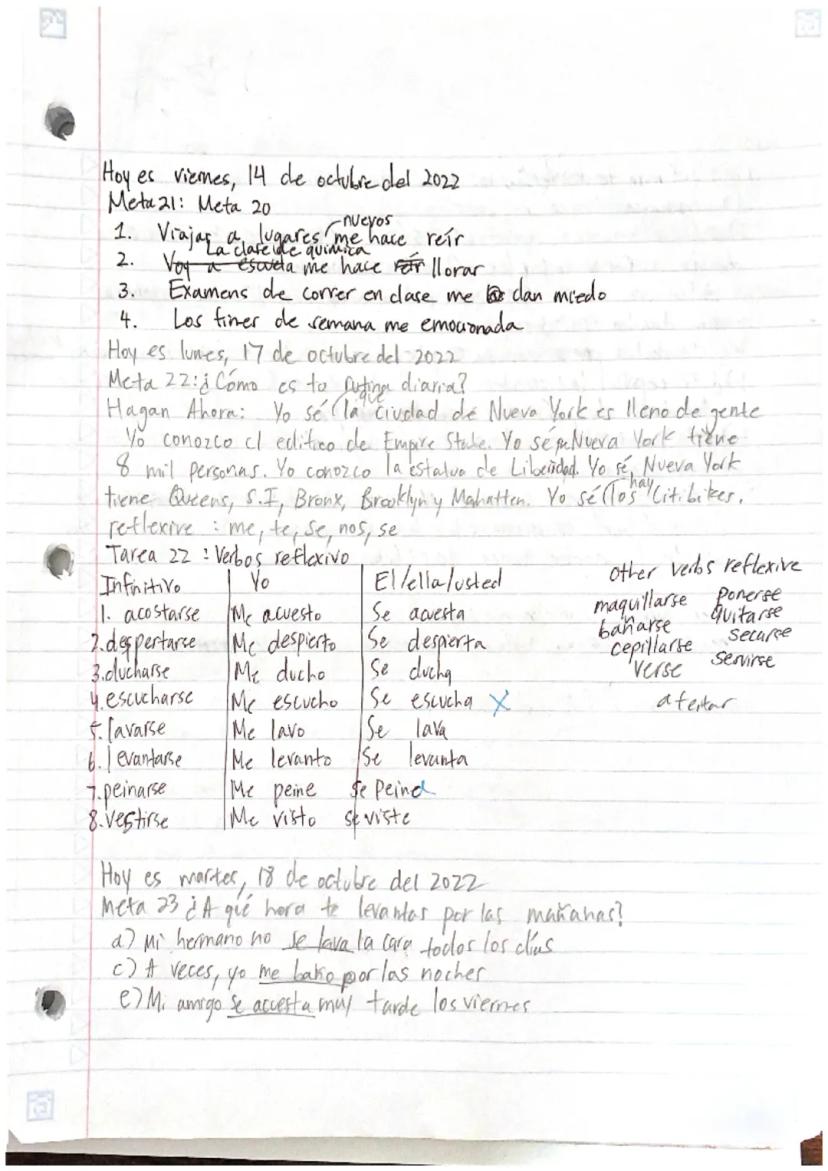 Hoy es viernes, 14 de octubre del 2022
Meta 21: Meta 20
1. Viajar a lugares nuevos me hace reír
2. La clase de química me hace llorar
3. Examens de correr en clase me dan miedo
4. Los fines de semana me emocionada
Hoy es lunes, 17 de octubre del 2022
Meta 22: ¿Cómo es tu rutina diaria?
Hagan Ahora: Yo sé que la ciudad de Nueva York es lleno de gente
Yo conozco el edifico de Empire State. Yo sé Nueva York tiene
8 mil personas. Yo conozco la estatua de Yo sé, Nueva York
tiene Queens, S.I, Bronx, Brooklyn y Mahatten. Yo sé los hay Citibikes.
reflexive: me, te, se, nos, se
Tarea 22: Verbos reflexivo
Infinitivo Yo El/ella/usted
1. acostarse Me acuesto Se acuesta
2. despertarse Me despierto Se despierta
3. ducharse Me ducho Se ducha
4. escucharse Me escucho Se escucha X
5. lavarse Me lavo Se lava
6. levantarse Me levanto Se levanta
7. peinarse Me peine se Peina
8. vestirse Me visto se viste
Other verbs reflexive
maquillarse ponerse
bañarse quitarse
cepillarse secarse
verse servirse
afeitar
Hoy es martes, 18 de octubre del 2022
Meta 23 ¿A qué hora te levantas por las mañanas?
a) Mi hermano no se lava la cara todos los días
c) A veces, yo me baño por las noches
e) Mi amigo se acuesta muy tarde los viernes